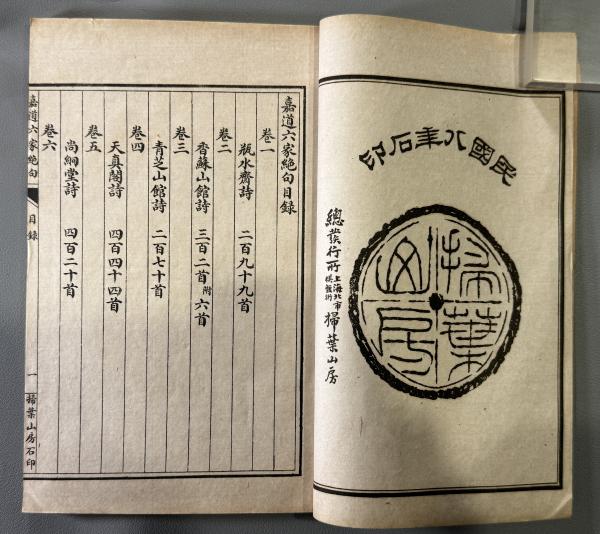 民國八年石印
掃葉山房
總發行所上海北市棋盤街掃葉山房
嘉道六家絕句目錄
卷一
瓶水齋詩 二百九十九首
卷二
香蘇山館詩 三百二首附六首
卷三
青芝山館詩 二百七十首
卷四
天真閣詩 四百四十四首
卷五
尚絅堂詩 四百二十首
卷六
嘉道六家絕句 目錄 一 掃葉山房石印